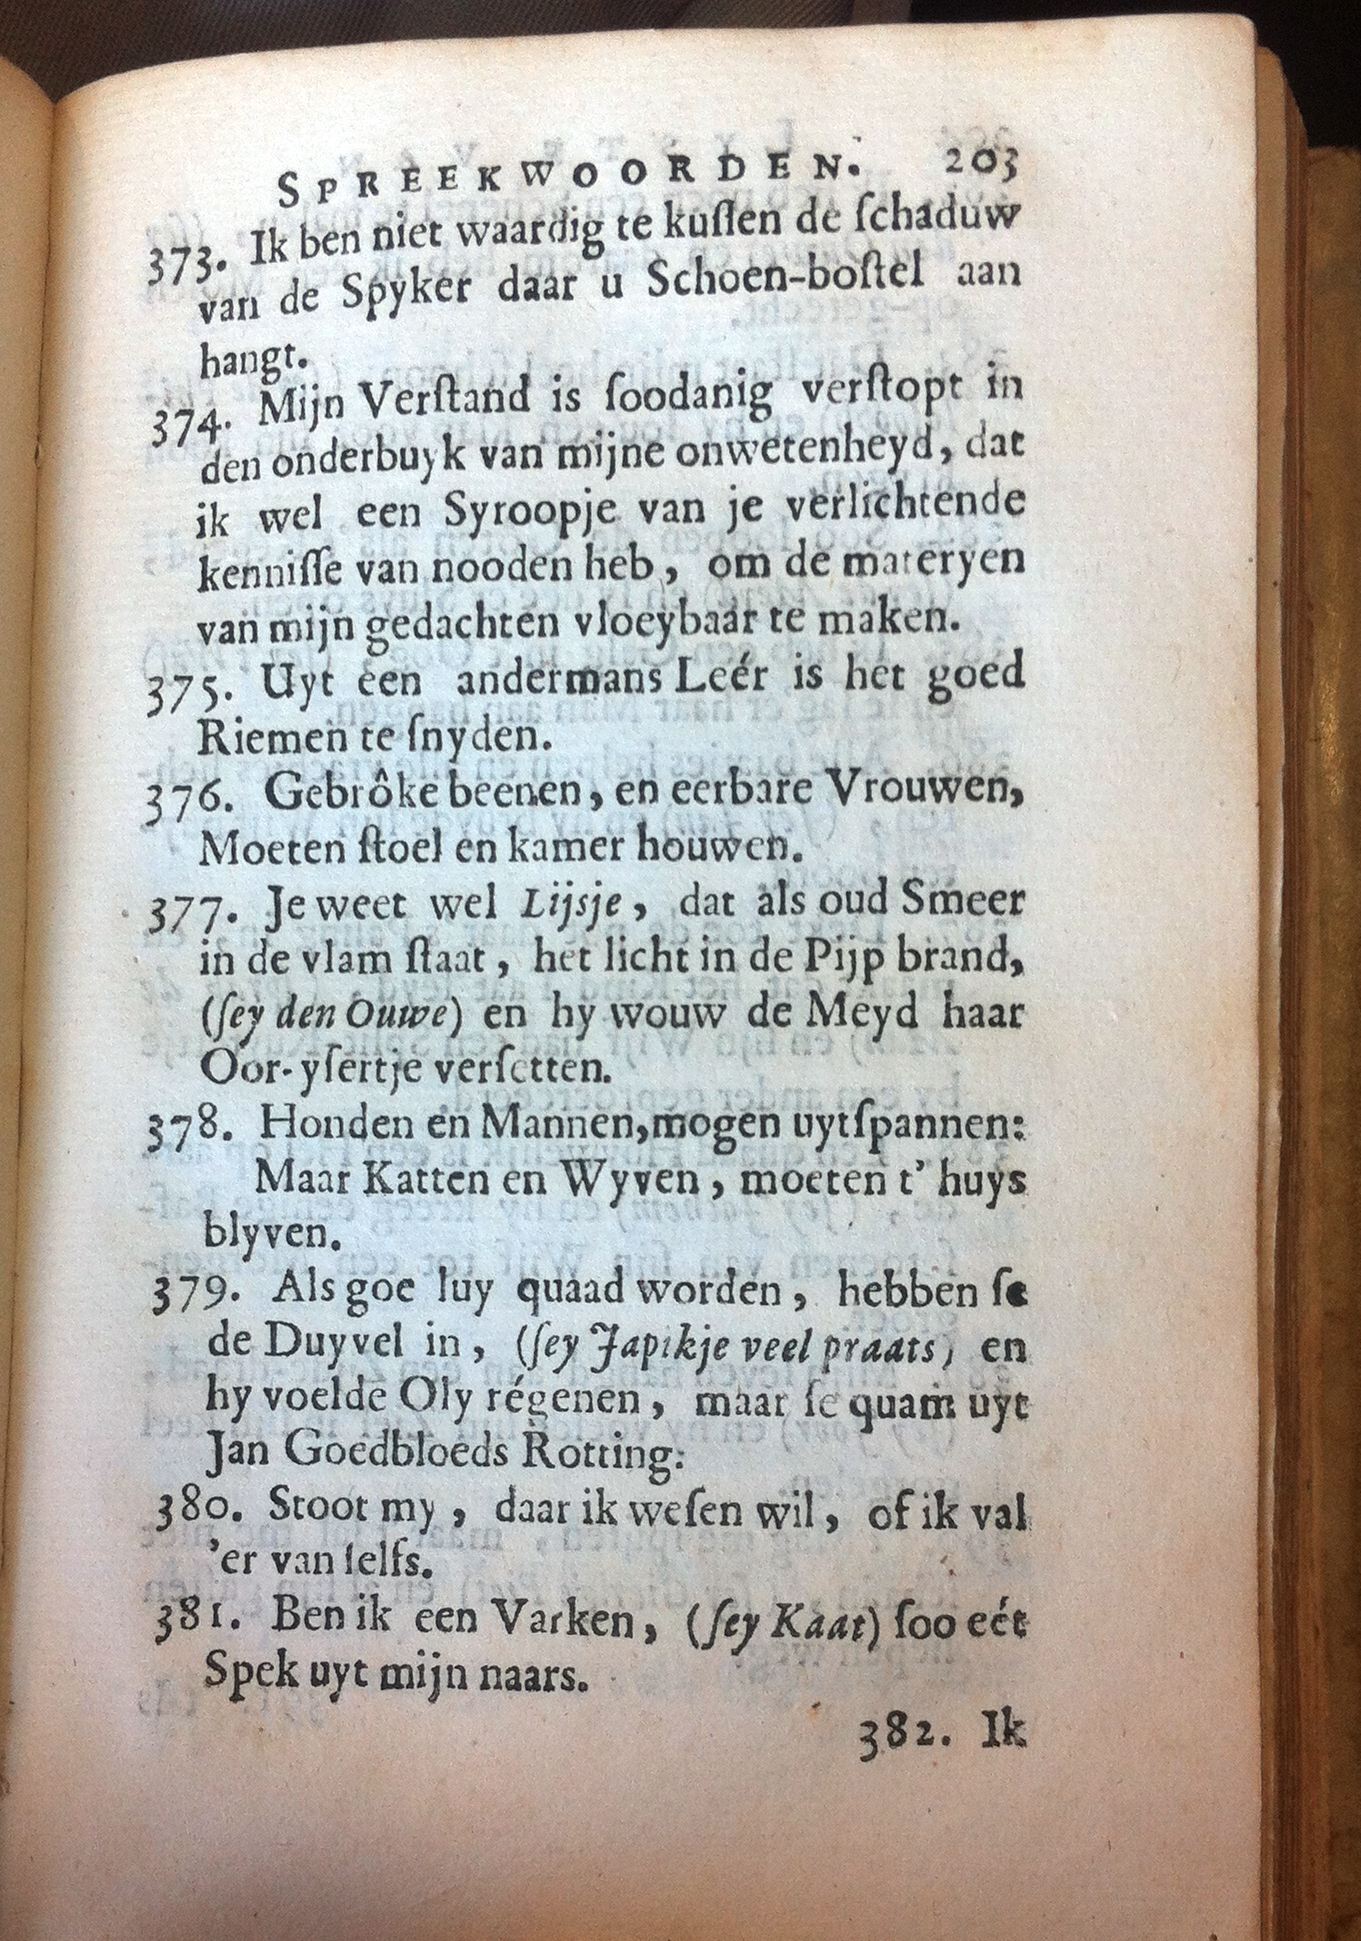 SPREEKWOORDEN. 203
373. Ik ben niet waardig te kuſſen de ſchaduw
van de Spyker daar u Schoen-boſtel aan
hangt.
374. Mijn Verſtand is ſoodanig verſtopt in
den onderbuyk van mijne onwetenheyd, dat
ik wel een Syroopje van je verlichtende
kenniſſe van nooden heb, om de materyen
van mijn gedachten vloeybaar te maken.
375. Uyt een andermans Leér is het goed
Riemen te ſnyden.
376. Gebrôke beenen, en eerbare Vrouwen,
Moeten ſtoel en kamer houwen.
377. Je weet wel Lijsje, dat als oud Smeer
in de vlam ſtaat, het licht in de Pijp brand,
(ſey den Ouwe) en hy wouw de Meyd haar
Oor-yſertje verſetten.
378. Honden en Mannen, mogen uytſpannen:
Maar Katten en Wyven, moeten t' huys
blyven.
379. Als goe luy quaad worden, hebben ſe
de Duyvel in, (ſey Japikje veel praats) en
hy voelde Oly régenen, maar ſe quam uyt
Jan Goedbloeds Rotting.
380. Stoot my, daar ik weſen wil, of ik val
'er van ſelfs.
381. Ben ik een Varken, (ſey Kaat) ſoo eét
Spek uyt mijn naars.
382. Ik